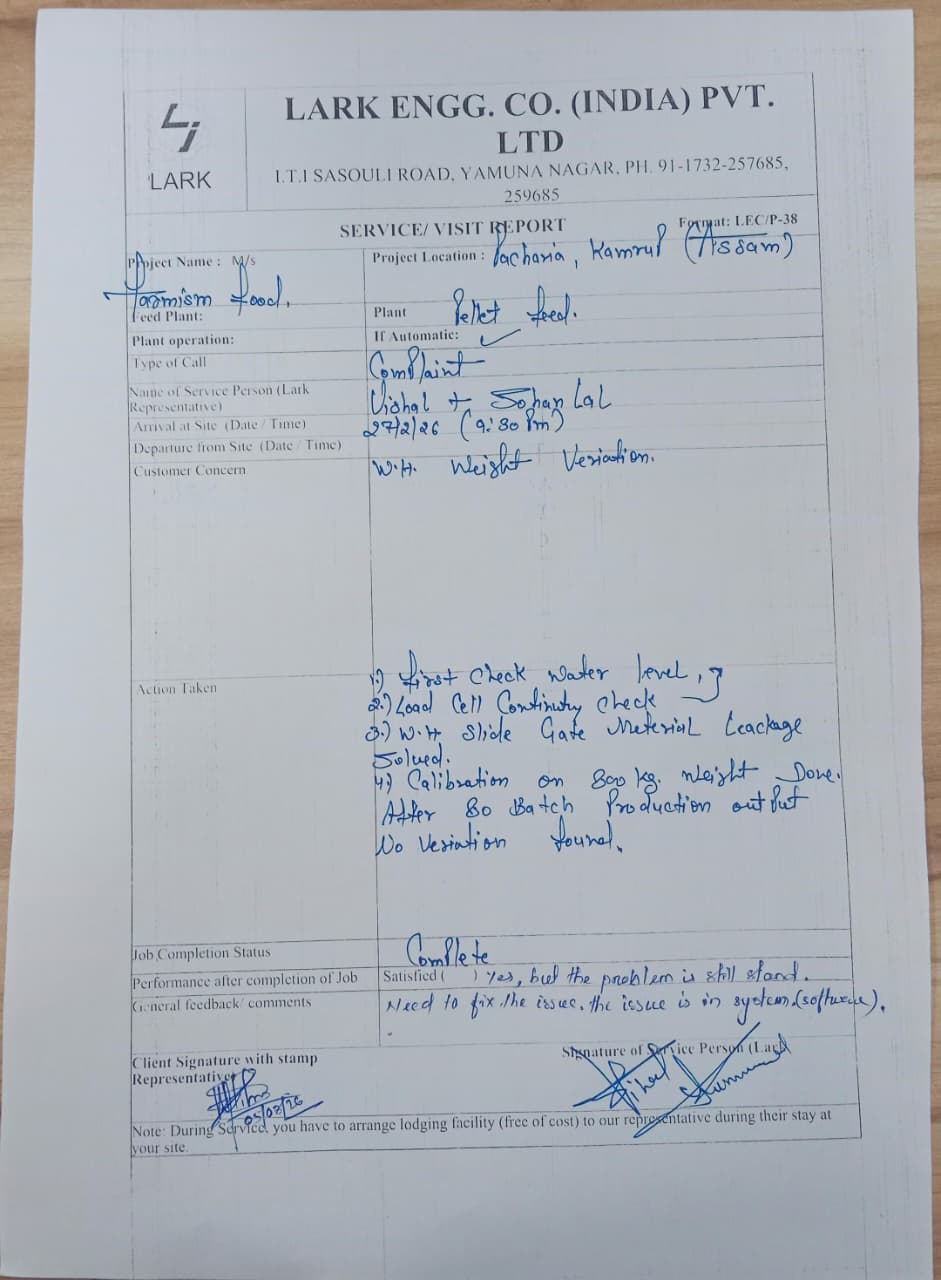 LARK
LARK ENGG. CO. (INDIA) PVT.
LTD
I.T.I SASOULI ROAD, YAMUNA NAGAR, PH. 91-1732-257685,
259685
SERVICE/ VISIT REPORT Format: LEC/P-38
Project Name : M/s
Project Location : Pacharia, Kamrup (Assam)
Food.
Feed Plant:
Plant Pellet feed.
Plant operation: If Automatic: ✓
Type of Call Complaint
Name of Service Person (Lark
Representative) Vishal + Sohan Lal
Arrival at Site (Date / Time) 27/2/26 (9:30 Pm)
Departure from Site (Date / Time)
Customer Concern W.H. Weight Veriation.
Action Taken 1.) First Check Water level,
2.) Load Cell Continuty Check
3.) W.H Slide Gate Meterial Leackage
Solved.
4) Calibration on 800 kg. Weight Done.
After 80 Batch Production output
No Veriation found.
Job Completion Status Complete
Performance after completion of Job Satisfied ( ) Yes, but the problem is still stand.
General feedback/ comments Need to fix the issue. the issue is in system.(software).
Client Signature with stamp
Representative
Signature of Service Person (Lark
Note: During Service, you have to arrange lodging facility (free of cost) to our representative during their stay at
your site.